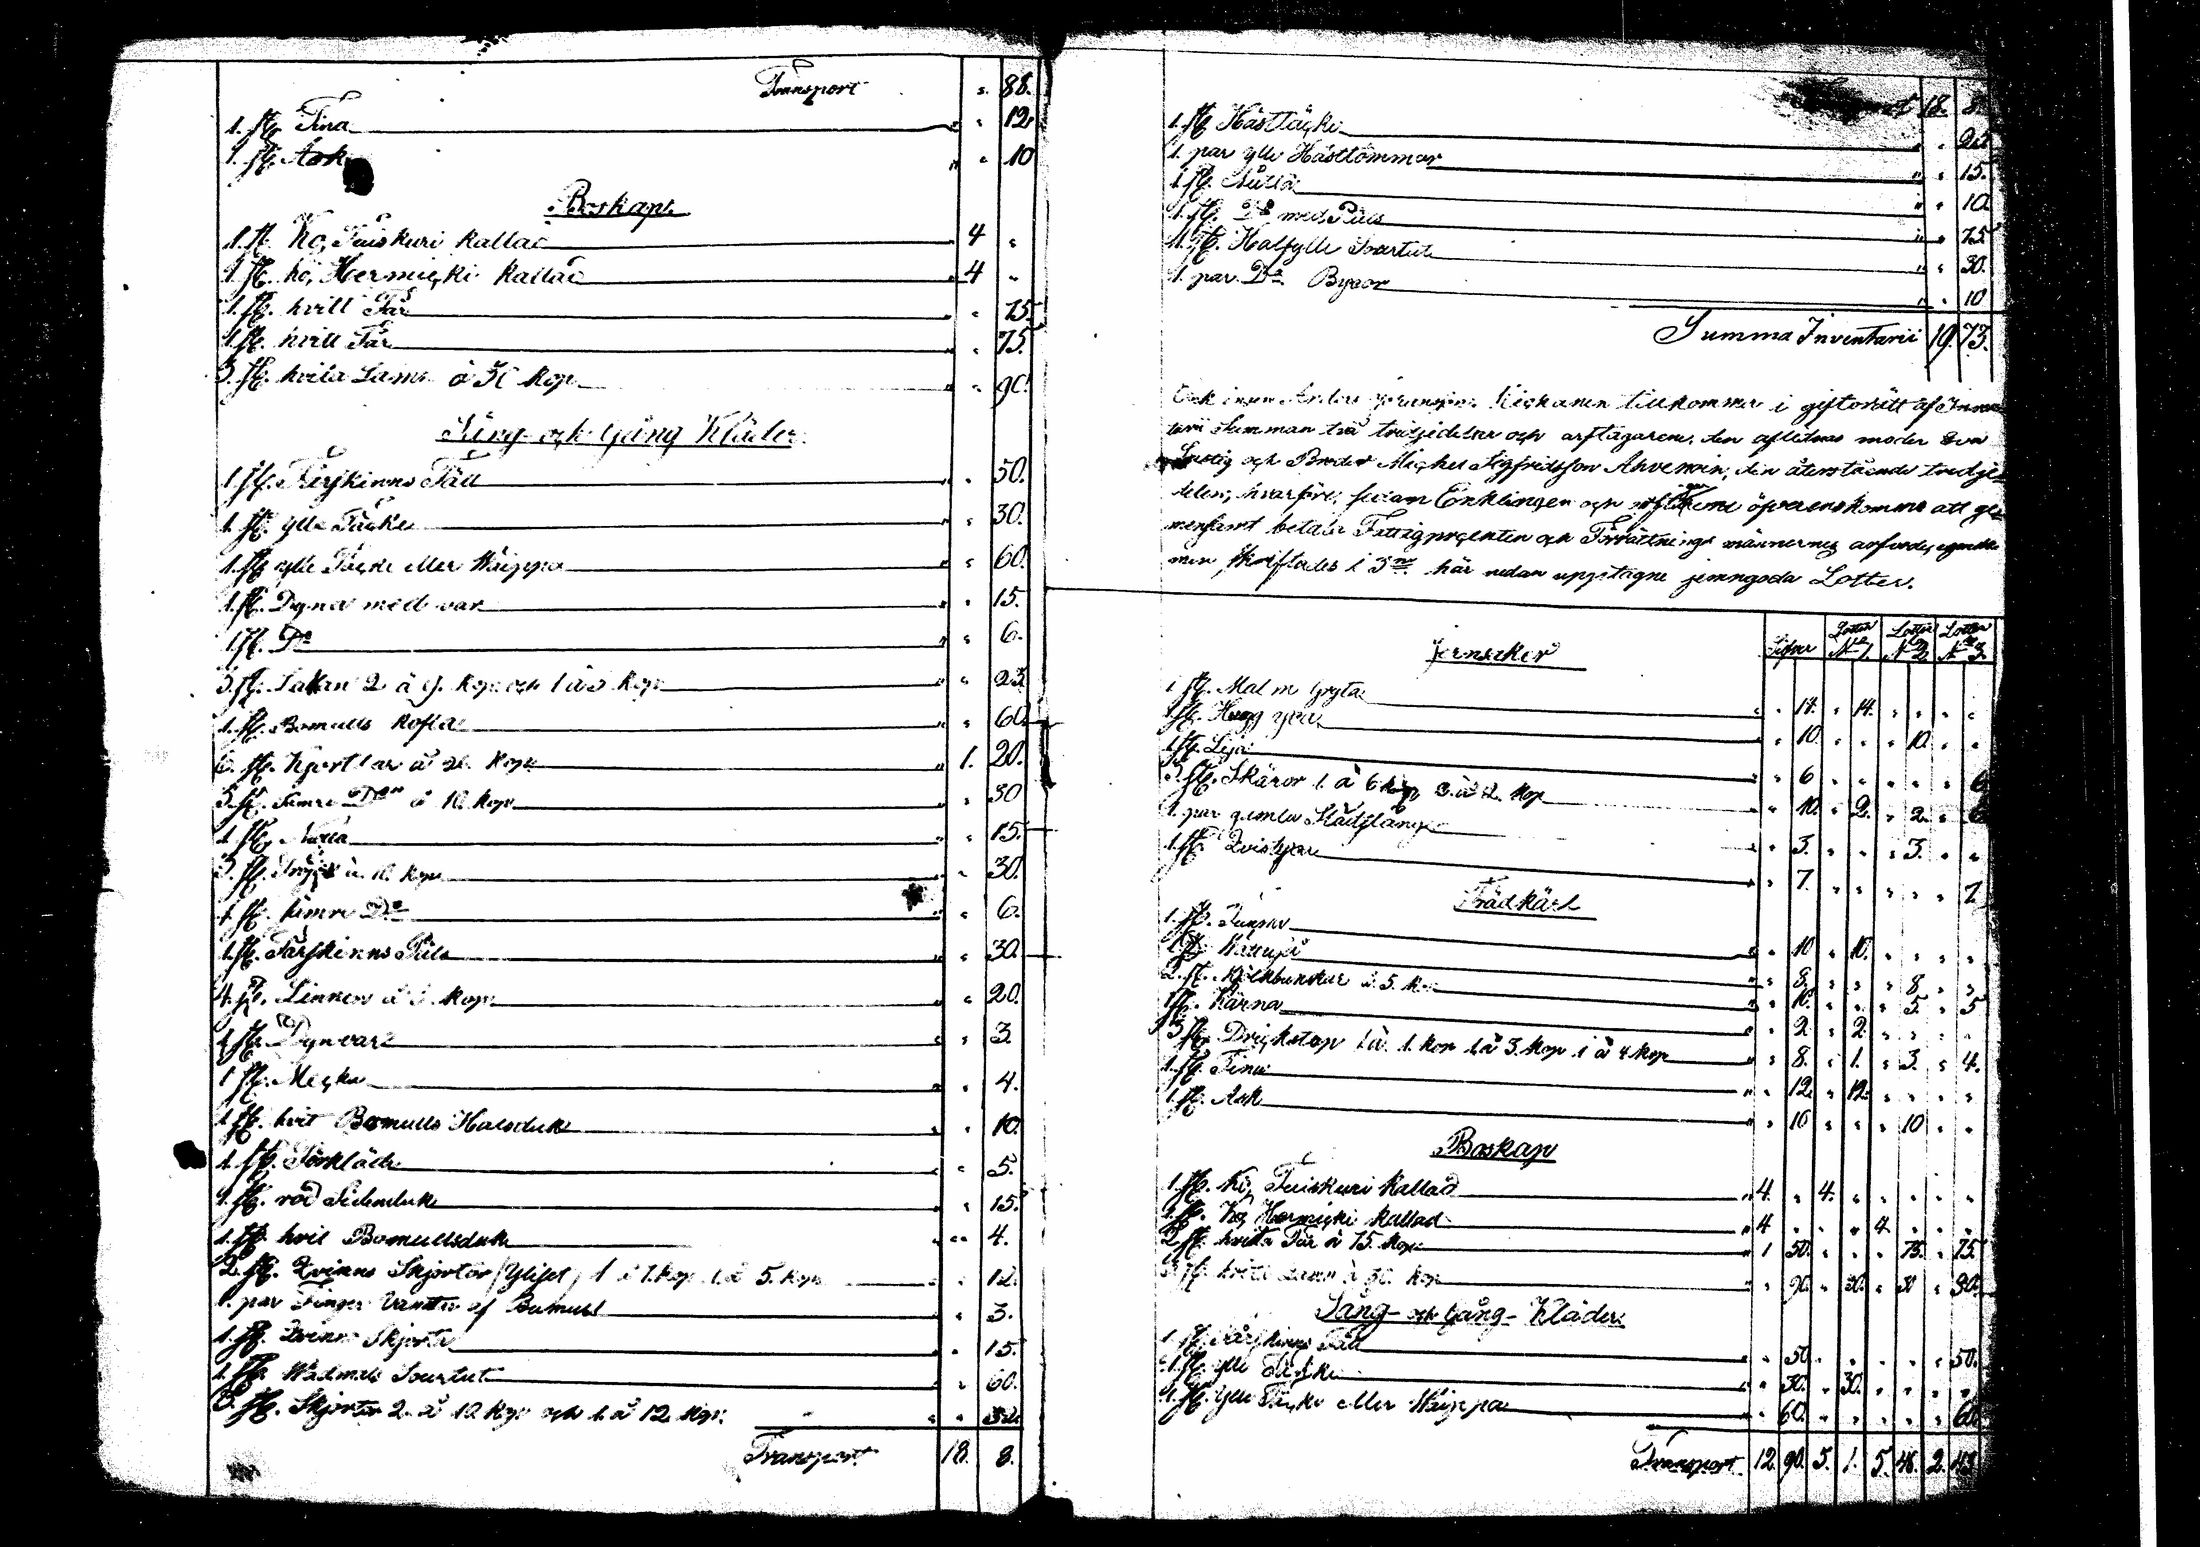 Transport " 88.
1. st. Tina " " 12.
1. st. Ask " " 10
Boskap
1. st. Ko, Tuiskuri kallad 4 "
1. st. ko, Hermicki kallad 4 "
1. st. hvitt Får " 75.
1. st. hvitt Får " 75.
3. st. hvita Lamm à 30 kop " " 90.
Säng- och Gång Kläder
1. st. Fårskinns Fäll " 50.
1. st. ylle Täcke " 30.
1. st. ylle Täcke eller Waippa " 60.
1. st. Dyna med var " " 15.
1. st. Do " " 6.
3. st. Lakan 2 à 9. kop och 1 à 5 kop " " 23
1. st. Bomulls kofta " " 60
6. st. kjortlar à 20. kop " 1. 20.
3. st. sämre Do à 10. kop " 30
1. st. " 15.
3. st. à 10. kop " 30.
1. st. sämre Do " " 6.
1. st. Fårskinns Päls " " 30.
4. st. Linnen à 5 kop " 20.
1. st. Dynvar " " 3.
1. st. Mecko " " 4.
1. st. hvit Bomulls Halsduk " " 10.
1. st. Förkläde " " 5.
1. st. röd Silkesduk " 15.
1. st. hvit Bomullsduk " " 4.
2. st. Qvinns Skjortor (Yliset) 1 à 7. kop 1. à 5. kop " 12.
1. par Finger Vantar af Bomull " " 3.
1. st. Qvinns Skjorta " " 15.
1. st. Wadmals Sourtut " " 60.
3. st. Skjortor 2. à 10. kop och 1. à 12. kop. " " 32.
Transport 18. 8.
18. 8.
1. st. Hästtäcke " "
1. par ylle Hästtömmar " " 15.
1. st. " " 10.
1. st. Do med Päls " " 75
1. st. Halfylle Sourtut " " 30.
1. par. Do Byxor " " 10
Summa Inventarii 19. 73.
Anders Kickanen tillkommer i giftorätt af Inven
tarii Summan två tredjedelar och arftagarene, den aflidnas moder Eva
och Broder Michel Sigfridsson Ahvenain, den återstående tredje
delen; hvarföre, sedan Enklingen och öfverenskommo att ge
mensamt betala Fattigprocenten och Förrättnings männernes
men, skiftades i 3ne här nedan upptagne jemngoda Lotter.
Jernsaker Lotten No 1. Lotten No 2. Lotten No 3.
1. st. Malm Gryta " 14. " 14. " " " "
1. st. Hugg yxa " 10. " " " 10. " "
1. st. Lija " 6 " " " " " 6
3. st. Skäror 1. à 6 kop 2. à 2. kop " 10. " 2. " 2. " 6
1. par gamla " 3. " " " 3. " "
1. st. " 7. " " " " " 7
Trädkärl
1. st. " 10 " 10. " " " "
1. st. " 8. " " " 8 " "
2. st. Mjölkbunkar à 5. kop " 10. " " " 5. " 5
1. st. Kärna " 2. " 2. " " " "
3. st. Drickstop 1. à 1. kop 1. à 3. kop 1 à 4 kop " 8. " 1. " 3. " 4.
1. st. Tina " 12. " 12. " " " "
1. st. Ask " 10 " " " 10 " "
Boskap
1. st. Ko, Tuiskuri kallad " 4. " 4. " " " " "
1. st. Ko, Hermicki kallad " 4 " " " 4. " " "
2. st. hvitta Får à 75. kop " 1 50. " " " 75. " 75
3. st. hvita Lamm à 30. kop " " 90. " 30. " 30 " 30.
Säng- och Gång- Kläder
1. st. Fårskinns Fäll " " 50. " " " " " 50.
1. st. ylle Täcke " " 30. " 30. " " " "
1. st. ylle Täcke eller Waippa " 60. " " " " " 60.
Transport 12. 90. 5. 1. 5. 46. 2. 43.